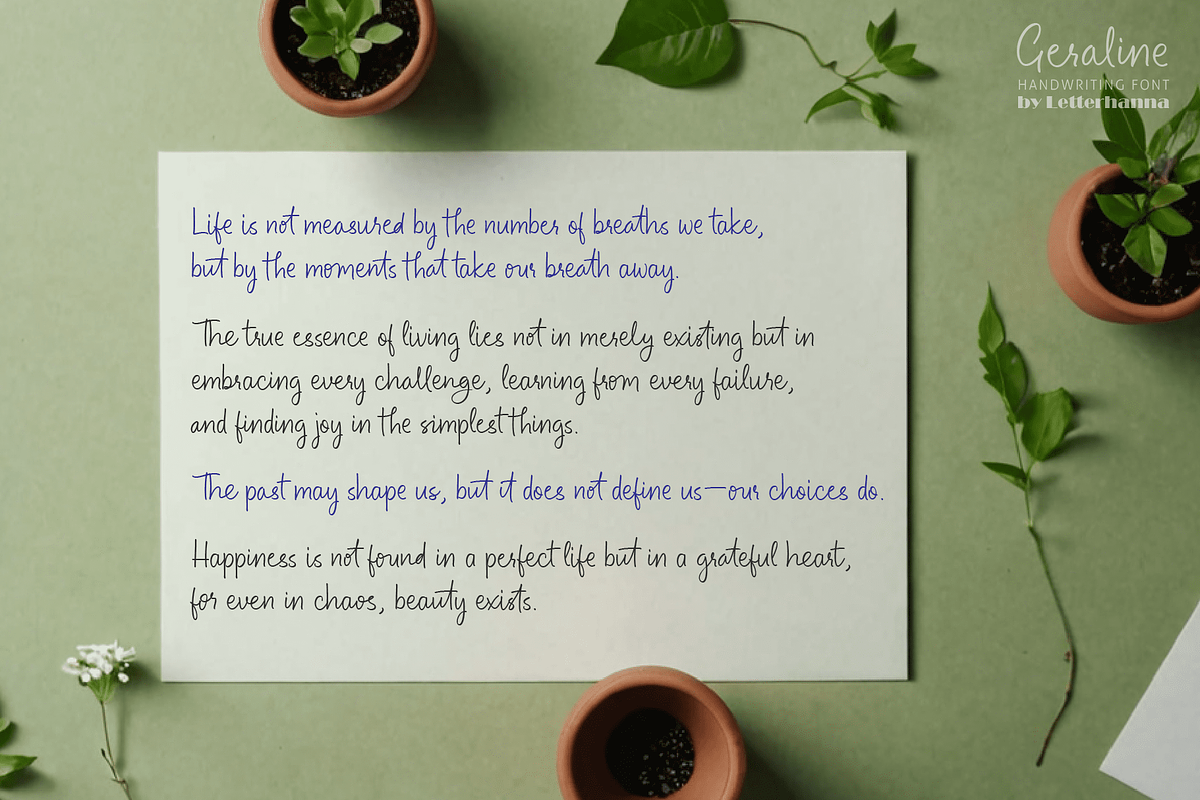 Geraline
HANDWRITING FONT
by Letterhanna
Life is not measured by the number of breaths we take,
but by the moments that take our breath away.
The true essence of living lies not in merely existing but in
embracing every challenge, learning from every failure,
and finding joy in the simplest things.
The past may shape us, but it does not define us—our choices do.
Happiness is not found in a perfect life but in a grateful heart,
for even in chaos, beauty exists.